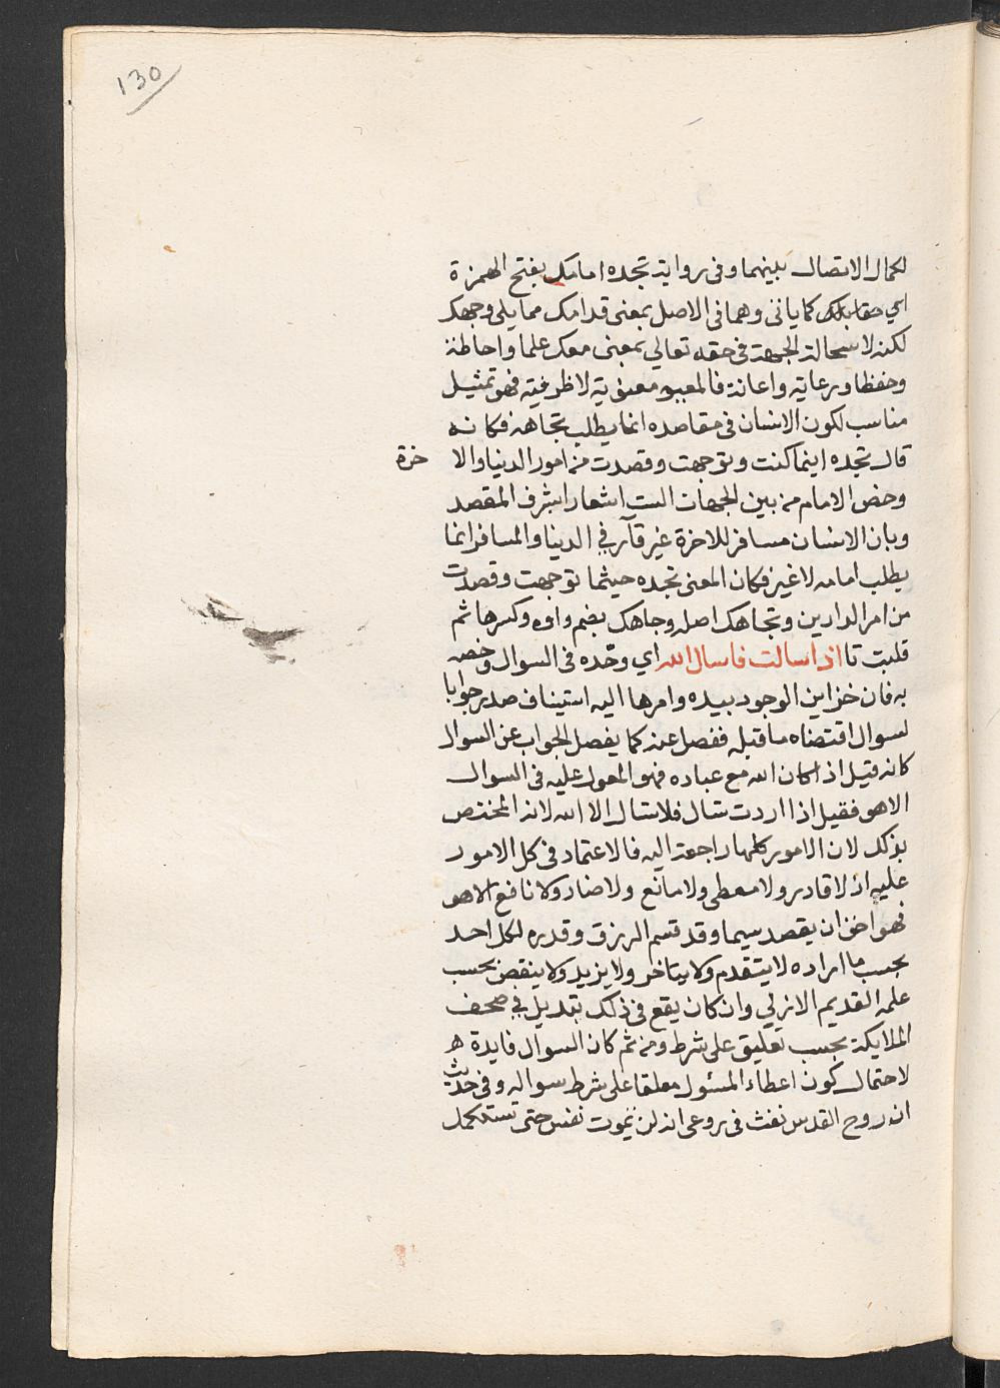 130
لكمال الاتصال بينهما وفى رواية تجده امامك بفتح الهمزة
اي مقابلك كما ياتى وهما فى الاصل بمعنى قدامك مما يلى وجهك
لكنه لاستحالة الجهة فى حقه تعالي بمعنى معك علما واحاطة
وحفظا ورعاية واعانة فالمعية معنوية لا ظرفية فهو تمثيل
مناسب لكون الانسان فى مقاصده انما يطلب تجاهه فكانه
قال تجده اينما كنت وتوجهت وقصدت من امور الدنيا والا خرة
وخص الامام من بين الجهات الست اشعارا بشرف المقصد
وبان الانسان مسافر للاخرة غير قآر في الدنيا والمسافر انما
يطلب امامه لا غير فكان المعنى تجده حيثما توجهت وقصدت
من امر الدارين وتجاهك اصله وجاهك بضم واوه وكسرها ثم
قلبت تا اذا سالت فاسال الله اي وحّده فى السوال وخصه
به فان خزاين الوجود بيده وامرها اليه استيناف صدر جوابا
لسوال اقتضاه ما قبله ففصل عنه كما يفصل الجواب عن السوال
كانه قيل اذا كان الله مع عباده فهو المعول عليه فى السوال
الا هو فقيل اذا اردت تسال فلا تسال الا الله لانه المختص
بذلك لان الامور كلها راجعة اليه فالاعتماد فى كل الامور
عليه اذ لا قادر ولا معطى ولا مانع ولا ضار ولا نافع الا هو
فهو احق ان يقصد سيما وقد قسم الرزق وقدره لكل احد
بحسب ما اراده لا يتقدم ولا يتاخر ولا يزيد ولا ينقص بحسب
علمه القديم الازلي وان كان يقع فى ذلك تبديل في صحف
الملايكة بحسب تعليق على شرط ومن ثم كان السوال فايدة
لاحتمال كون اعطاء المسئول معلقا على شرط سواله وفى حديث
ان روح القدس نفث فى روعى انه لن تموت نفس حتى تستكمل